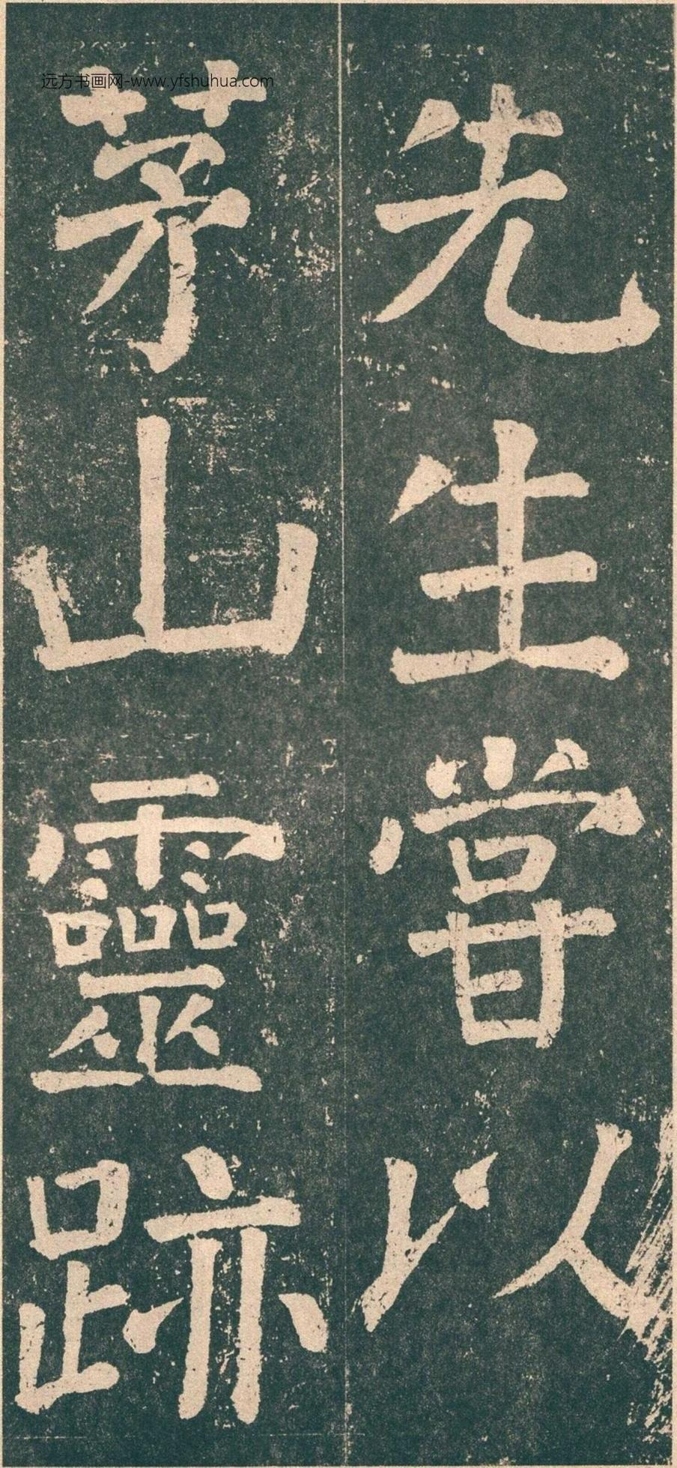 远方书画网-www.yfshuhua.com
先生甞以
茅山靈跡